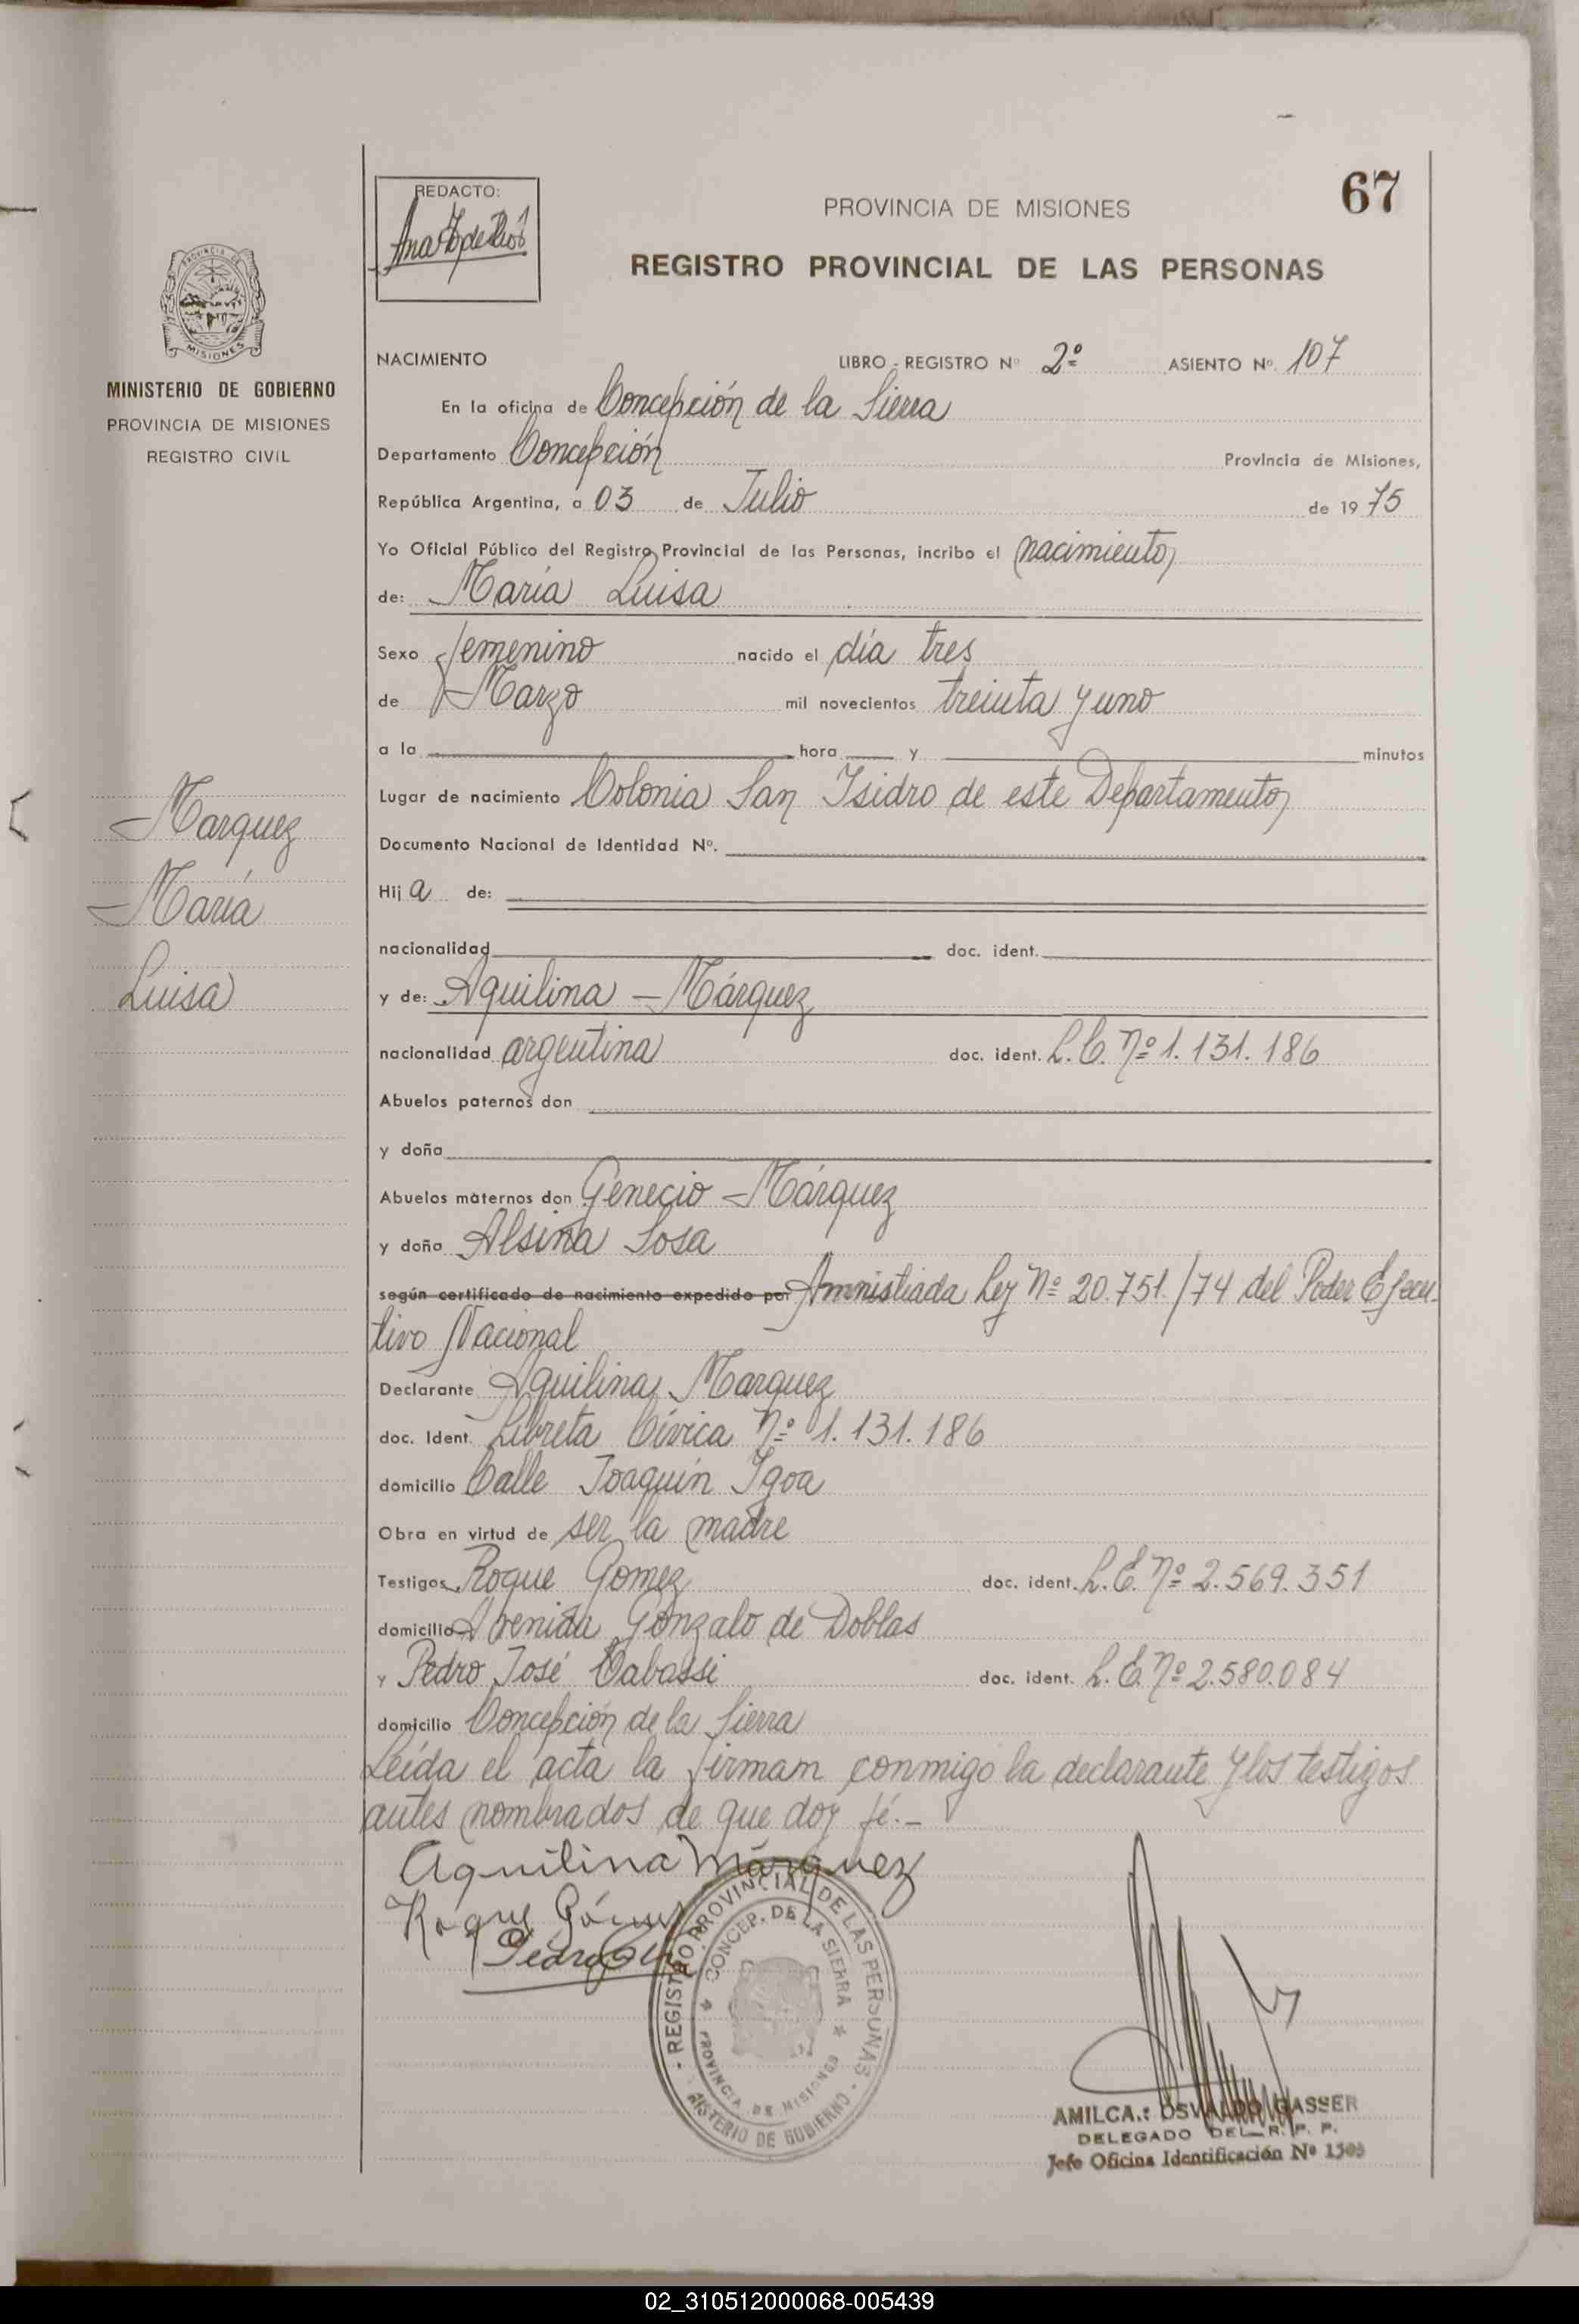 67
REDACTO:
PROVINCIA DE MISIONES
REGISTRO PROVINCIAL DE LAS PERSONAS
MISIONES
MINISTERIO DE GOBIERNO
PROVINCIA DE MISIONES
REGISTRO CIVIL
NACIMIENTO LIBRO - REGISTRO Nº 2º ASIENTO Nº. 107
En la oficina de Concepción de la Sierra
Departamento Concepción Provincia de Misiones,
República Argentina, a 03 de Julio de 1975
Yo Oficial Público del Registro Provincial de las Personas, incribo el nacimiento
de: María Luisa
Sexo femenino nacido el día tres
de Marzo mil novecientos treinta y uno
a la hora y minutos
Lugar de nacimiento Colonia San Isidro de este Departamento
Documento Nacional de Identidad Nº.
Hija de:
nacionalidad doc. ident.
y de: Aquilina Márquez
nacionalidad argentina doc. ident. L.C. Nº 1.131.186
Abuelos paternos don
y doña
Abuelos maternos don Genecio Márquez
y doña Alsina Sosa
según certificado de nacimiento expedido por Amnistiada Ley Nº 20.751/74 del Poder Ejecu-
tivo Nacional
Declarante Aquilina Marquez
doc. Ident. Libreta Cívica Nº 1.131.186
domicilio Calle Joaquín Igoa
Obra en virtud de ser la madre
Testigos Roque Gomez doc. ident. L.E. Nº 2.569.351
domicilio Avenida Gonzalo de Doblas
y Pedro José Cabassi doc. ident. L.E. Nº 2.580.084
domicilio Concepción de la Sierra
Leída el acta la firman conmigo la declarante y los testigos
antes nombrados de que doy fé.-
Marquez
María
Luisa
Aquilina Márquez
Roque Gómez
Pedro
REGISTRO PROVINCIAL DE LAS PERSONAS
CONCEP. DE LA SIERRA
PROVINCIA DE MISIONES
MINISTERIO DE GOBIERNO
AMILCA.: OSVALDO GASSER
DELEGADO DEL R. P. P.
Jefe Oficina Identificación Nº 1505
02_310512000068-005439